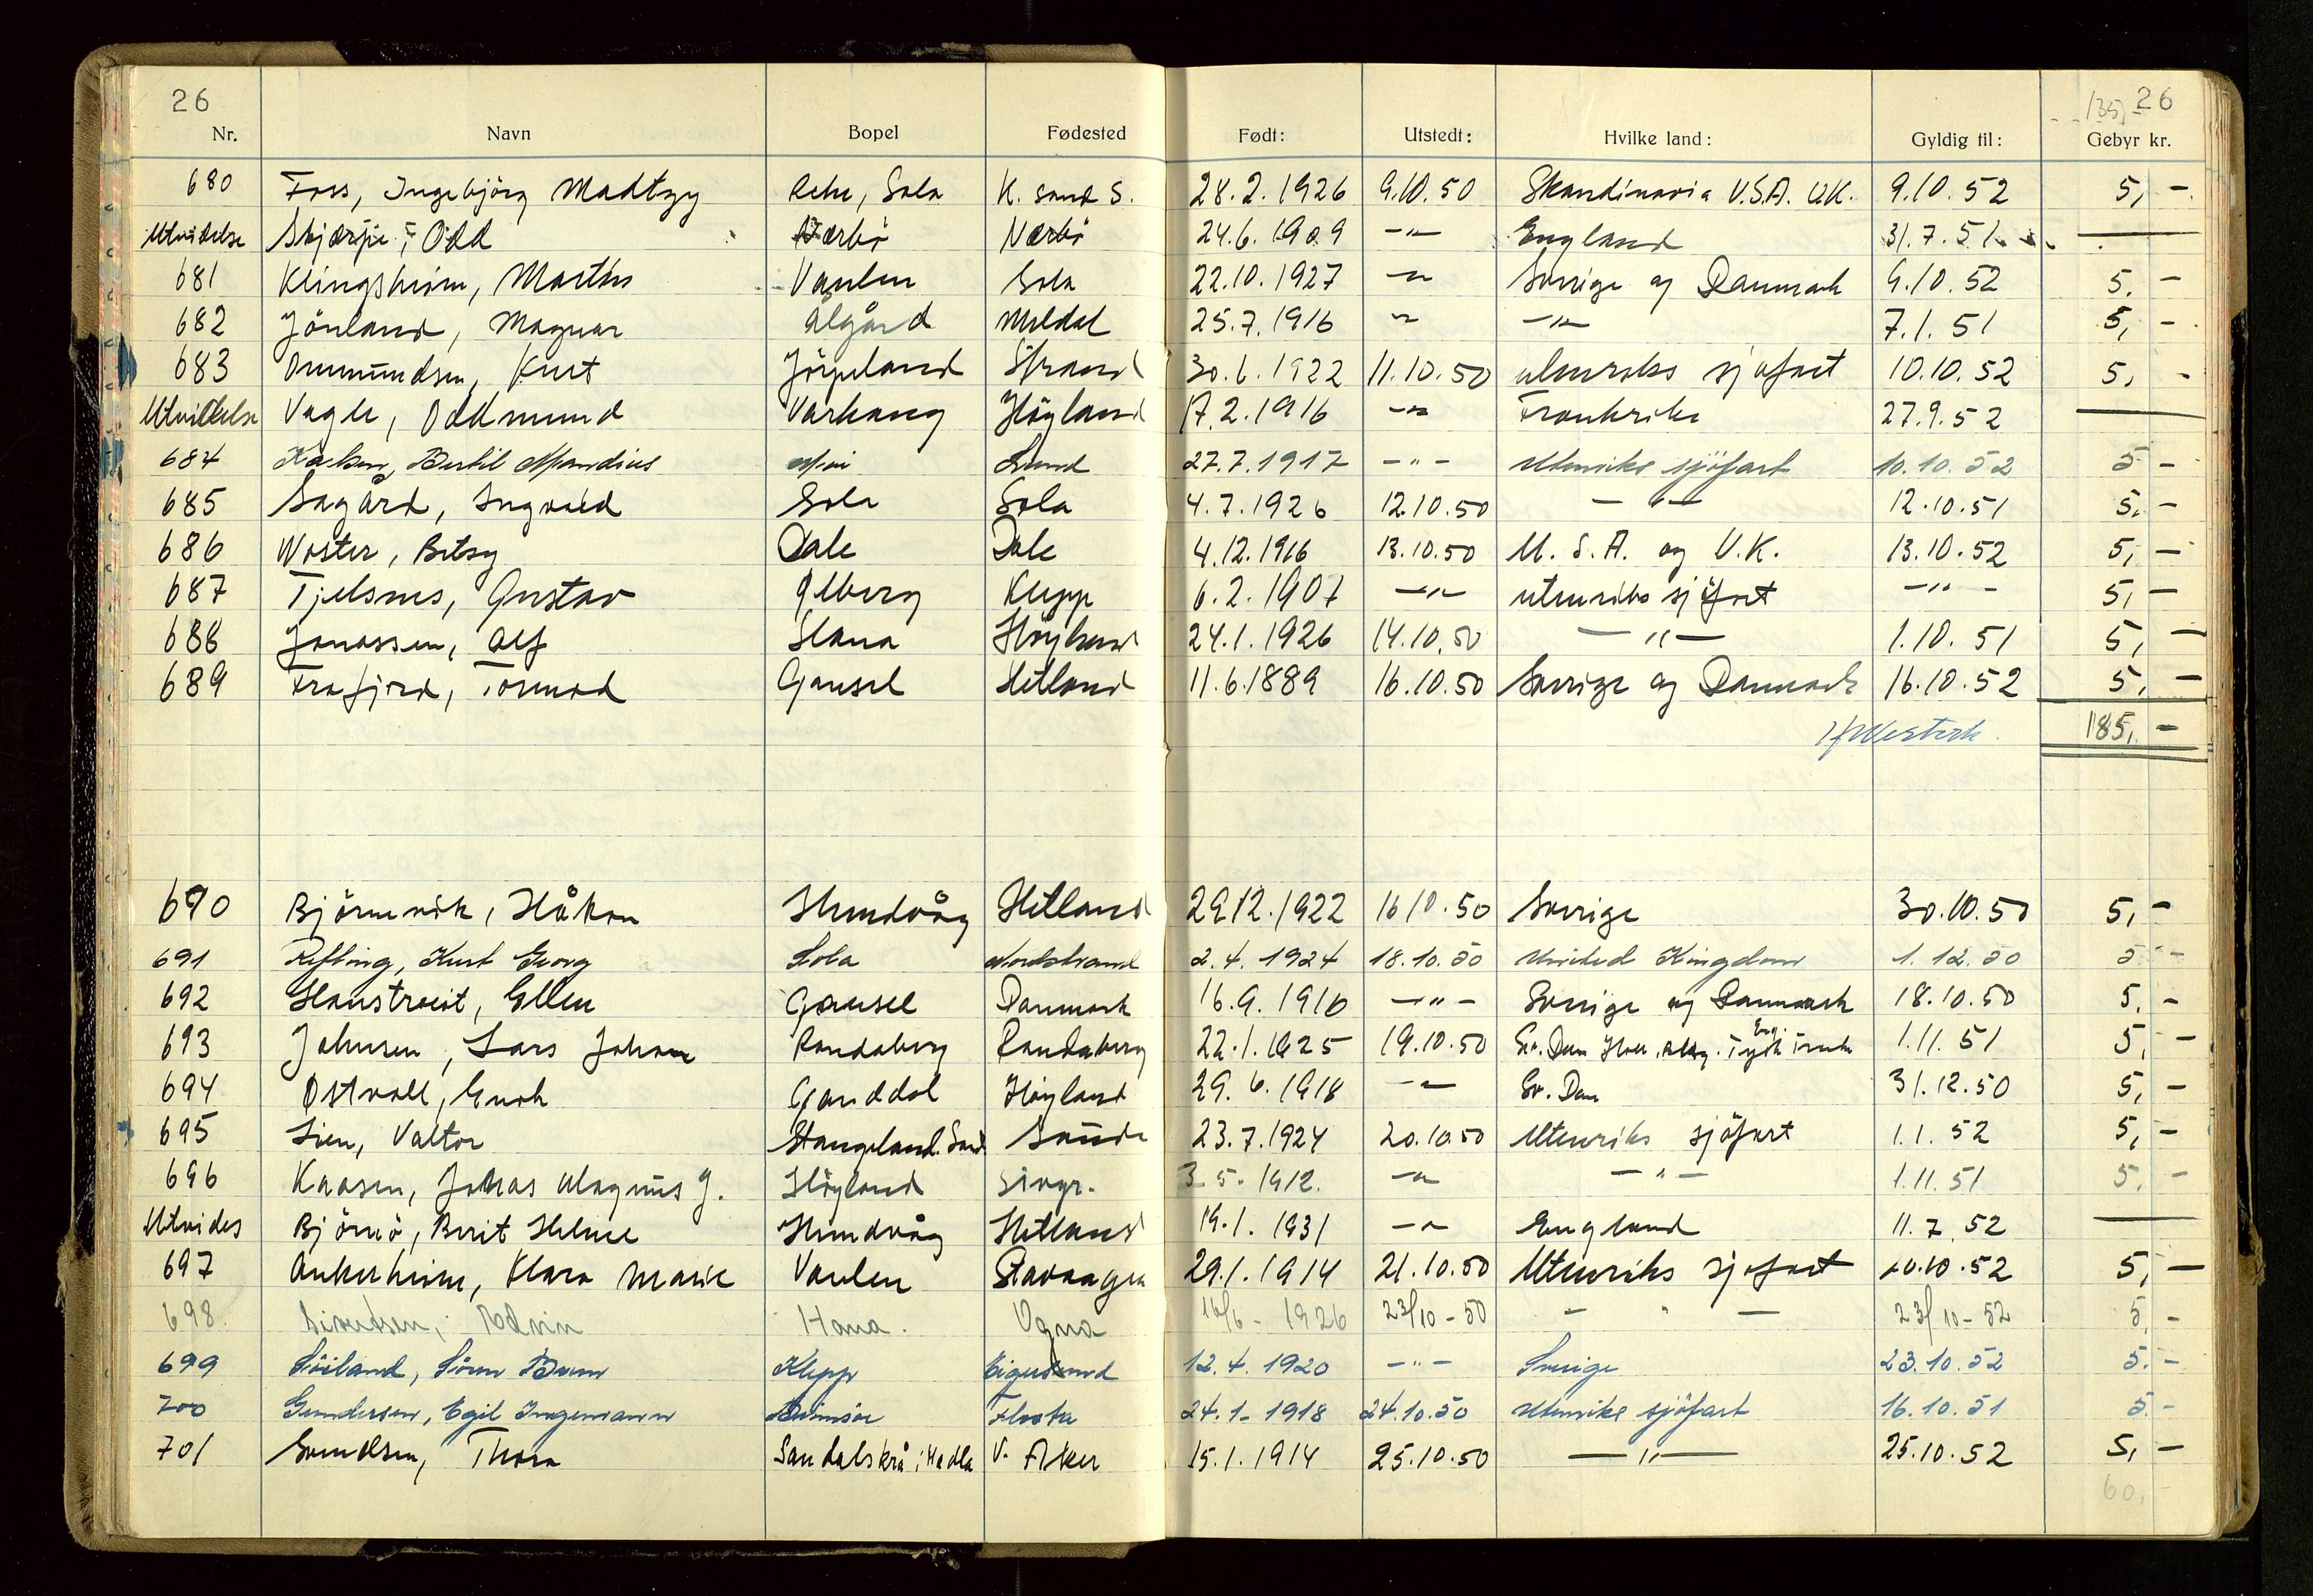 26 135,- 26
Nr. Navn Bopel Fødested Født: Utstedt: Hvilke land: Gyldig til: Gebyr kr.
680 Foss, Ingebjörg Sola K. sand S. 28.2.1926 9.10.50 Skandinavia U.S.A. U.K. 9.10.52 5,-
Utvidelse Odd Nærbö Nærbö 24.6.1909 -"- England 31.7.51
681 Klingsheim, Martha Vaulen Sola 22.10.1927 -"- Sverige og Danmark 9.10.52 5,-
682 Jönland, Magnar Ålgård Meldal 25.7.1916 -"- -"- 7.1.51 5,-
683 Ommundsen, Kurt Jörpeland Strand 30.6.1922 11.10.50 utenriks sjøfart 10.10.52 5,-
Utvidelse Vagle, Oddmund Varhaug Höyland 17.2.1916 -"- Frankrike 27.9.52
684 Bertil Moi Lund 27.7.1917 -"- Utenriks sjöfart 10.10.52 5-
685 Sagård, Ingvald Sola Sola 4.7.1926 12.10.50 -"- 12.10.51 5,-
686 Woster, Betsy Dale Dale 4.12.1916 13.10.50 U.S.A. og U.K. 13.10.52 5,-
687 Tjelsnes, Gustav Ølberg Klepp 6.2.1907 -"- utenriks sjöfart -"- 5,-
688 Jonassen, Alf Hana Höyland 24.1.1926 14.10.50 -"- 1.10.51 5,-
689 Frafjord, Tormod Gausel Hetland 11.6.1889 16.10.50 Sverige og Danmark 16.10.52 5,-
185,-
690 Björnevik, Håkon Hundvåg Hetland 29.12.1922 16.10.50 Sverige 30.10.50 5,-
691 Refling, Kurt Georg Sola Nordstrand 2.4.1924 18.10.50 United Kingdom 1.12.50 5-
692 Hanstveit, Ellen Gausel Danmark 16.9.1916 -"- Sverige og Danmark 18.10.50 5,-
693 Johnsen, Lars Johan Randaberg Randaberg 22.1.1925 19.10.50 Sv. Dan Holl. Belg. Tysk Eng. Frank 1.11.51 5,-
694 Østvoll, Enok Ganddal Höyland 29.6.1918 -"- Sv. Dan 31.12.50 5,-
695 Lien, Valtor Stangeland. Sand. Sauda 23.7.1924 20.10.50 Utenriks sjöfart 1.1.52 5,-
696 Kaasen, Johas Magnus J. Höyland Svgr. 3.5.1912. -"- -"- 1.11.51 5,-
Utvides Björnö, Berit Helene Hundvåg Hetland 19.1.1931 -"- England 11.7.52
697 Ankerheim, Klara Marie Vaulen Stavanger 29.1.1914 21.10.50 Utenriks sjøfart 20.10.52 5,-
698. Sivertsen, Hana. Ogna 16/6-1926 23/10-50 - " - 23/10-52 5,-
699 Söiland, Sören Klepp Eigersund 12.4.1920 -"- Sverige 23.10.52 5.-
700 Gundersen, Egil Ingemann Flosta 24.1-1918 24.10.50 Utenriks sjöfart 16.10.51 5.-
701 Svendsen, Thora Sandalskrå i Madla V. Aker 15.1.1914 25.10.50 -"- 25.10.52 5,-
60,-